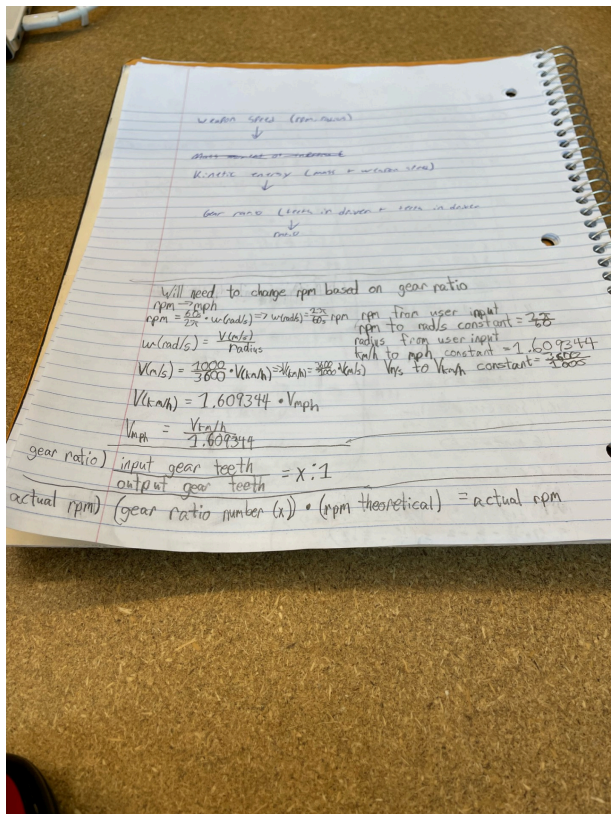 weapon speed (rpm, radius)
↓
Mass moment of
Kinetic energy (mass + weapon speed)
↓
Gear ratio (teeth in driver + teeth in driven
↓
ratio
Will need to change rpm based on gear ratio
rpm → mph
rpm = 60s/2π · w(rad/s) => w(rad/s) = 2π/60s rpm rpm from user input
rpm to rad/s constant = 2π/60
w(rad/s) = V(m/s)/radius radius from user input
km/h to mph constant = 1.609344
V(m/s) = 1000/3600 · V(km/h) => V(km/h) = 3600/1000 · V(m/s) Vm/s to Vkm/h constant = 3600/1000
V(km/h) = 1.609344 · Vmph
Vmph = Vkm/h / 1.609344
gear ratio) input gear teeth / output gear teeth = x:1
actual rpm) (gear ratio number (x)) · (rpm theoretical) = actual rpm